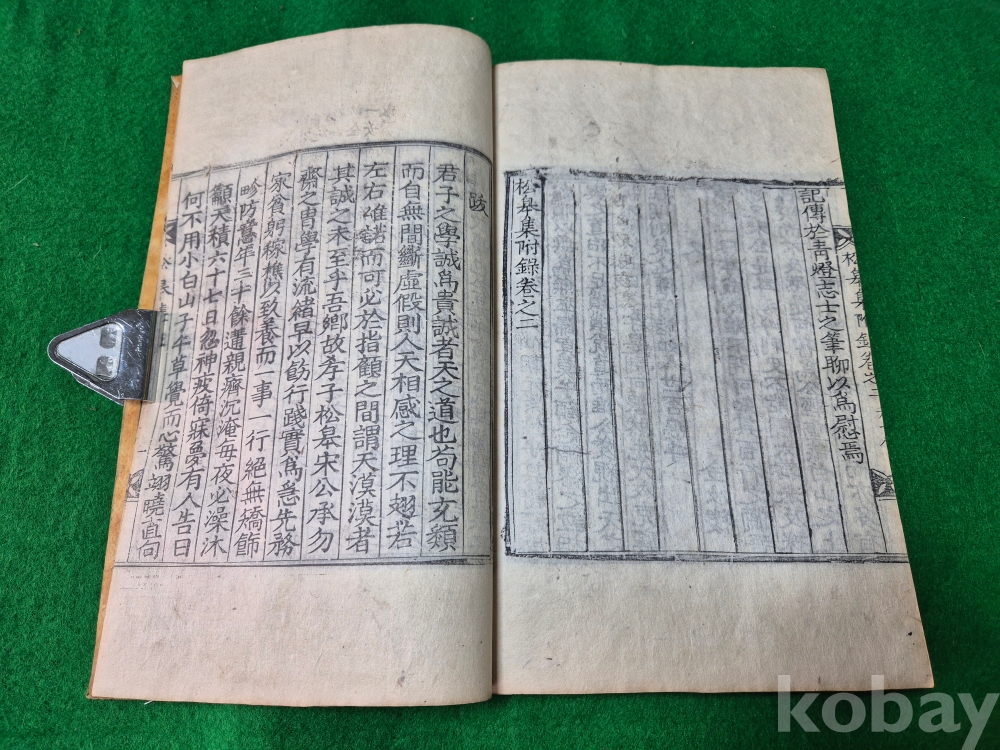 記傳於靑燈志士之筆聊以爲慰焉
松皐集附錄卷之二
跋
君子之學誠爲貴誠者天之道也苟能充類
而自無間斷虛假則人天相感之理不翅若
左右唯諾而可必於指顧之間謂天漠漠者
其誠之未至乎吾鄕故孝子松皐宋公承勿
齋之胄學有流緖早以飭行踐實爲急先務
家貧躬稼樵以致養而一事一行絕無矯餙
昣防舊年三十餘遭親癠沉淹每夜必澡沐
籲天積六十七日忽神疲倚寐夢有人告曰
何不用小白山子午草覺而心驚翅曉直向
松皐集附錄卷之二
kobay